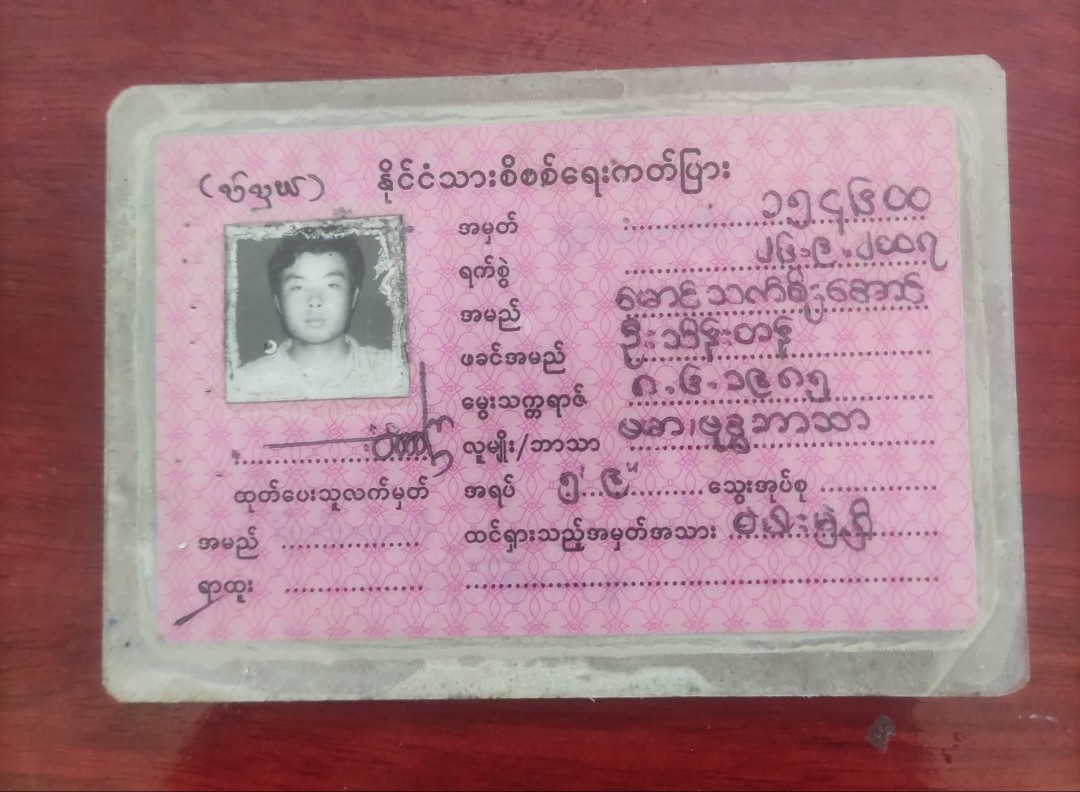 နိုင်ငံသားစိစစ်ရေးကတ်ပြား
အမှတ် ၁၅၄၆၀၀
ရက်စွဲ ၂၆.၉.၂၀၀၇
အမည် မောင်သက်စိုးအောင်
ဖခင်အမည် ဦးသိန်းတန်
မွေးသက္ကရာဇ် ၈.၆.၁၉၈၅
လူမျိုး/ဘာသာ ဗမာ၊ဗုဒ္ဓဘာသာ
အရပ် ၅' ၉" သွေးအုပ်စု
ထင်ရှားသည့်အမှတ်အသား
ထုတ်ပေးသူလက်မှတ်
အမည်
ရာထူး